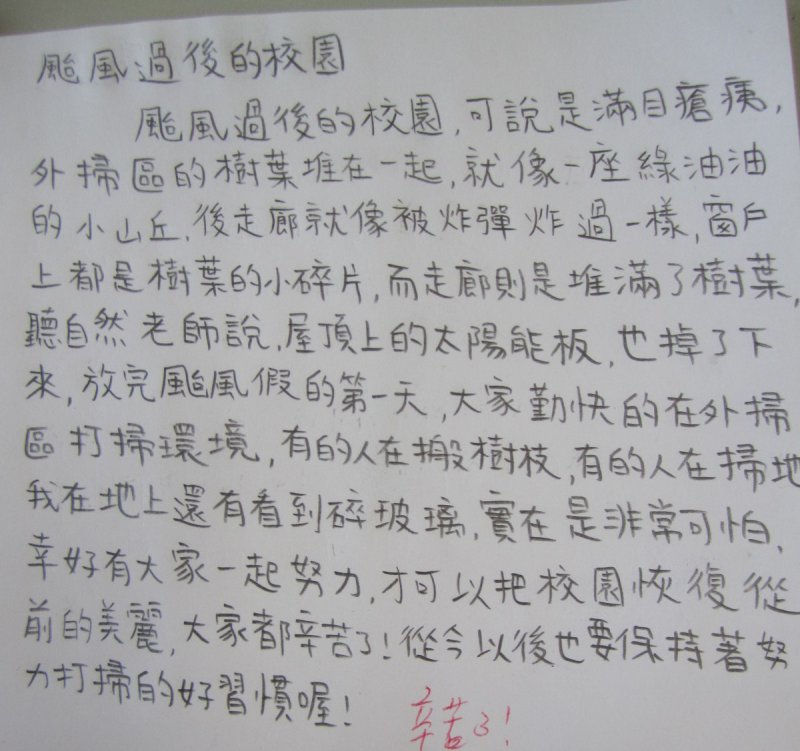 颱風過後的校園
颱風過後的校園,可說是滿目瘡痍,
外掃區的樹葉堆在一起,就像一座綠油油
的小山丘,後走廊就像被炸彈炸過一樣,窗戶
上都是樹葉的小碎片,而走廊則是堆滿了樹葉,
聽自然老師說,屋頂上的太陽能板,也掉了下
來,放完颱風假的第一天,大家勤快的在外掃
區打掃環境,有的人在搬樹枝,有的人在掃地
我在地上還有看到碎玻璃,實在是非常可怕,
幸好有大家一起努力,才可以把校園恢復從
前的美麗,大家都辛苦了!從今以後也要保持著努
力打掃的好習慣喔!
辛苦了!